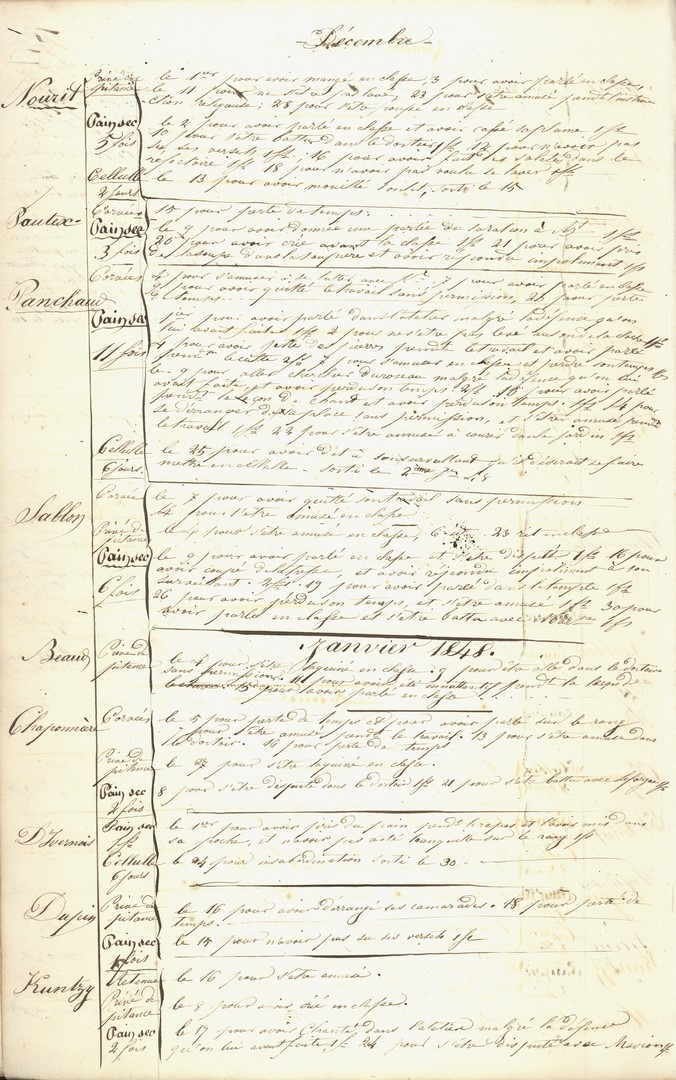 Décembre
Nourit
Privé de pitance
le 1er pour avoir mangé en classe, 3 pour avoir parlé en classe,
le 11 pour ne s'être pas lavé, 23 pour s'être amusé pendt l'instruc
tion religieuse; 28 pour s'être en classe
Pain sec
5 fois
le 2 pour avoir parlé en classe et avoir cassé sa plume 1 fs
10 pour s'être battu dans le dortoir 1 fs 12 pour n'avoir pas
su ses versets 1 fs; 16 pour avoir fait des saletés dans le
réfectoire 1 fs 18 pour n'avoir pas voulu se laver 1 fs
Cellule
2 jours
le 13 pour avoir mouillé son lit, sorti le 15
Pautex
Corvées
15 pour perte de temps.
Pain sec
3 fois
le 9 pour avoir donné une partie de sa ration à 1 fs
20 pour avoir crié avant la classe 1 fs 21 pour avoir pris
de la soupe dans la soupière et avoir répondu impoliment 1 fs
Panchaud
Corvées
4 pour s'amuser à se lutter avec 7 pour avoir parlé en classe
9 pour avoir quitté le travail sans permission, 25 pour perte
de temps.
Pain sec
11 fois
1er pour avoir parlé dans l'atelier malgré la défense qu'on
lui avait faite 1 fs 2 pour ne s'être pas levé au son de la cloche 1 fs
4 pour avoir jetté des pierres pendt le travail et avoir parlé
pendt le culte 2 fs 7 pour s'amuser en classe et perdre son temps 1 fs
le 9 pour aller chercher du roseau malgré la défense qu'on lui
avait faite, et avoir perdu son temps 2 fs 10 pour avoir parlé
pendt la leçon de chant et avoir perdu son temps 1 fs 14 pour
se déranger de sa place sans permission, et s'être amusé pendt
le travail 1 fs 22 pour s'être amusé à courir dans le jardin 1 fs
Cellule
6 jours
le 25 pour avoir dit à son surveillant qu'il désirait se faire
mettre en cellule - sorti le 2ème jr 48
Sablon
Corvée
le 7 pour avoir quitté son travail sans permission
4 pour s'être amusé en classe
Privé de pitance
le 4 pour s'être amusé en classe, 6 23 rit en classe
Pain sec
6 fois
le 9 pour avoir parlé en classe et s'être disputé 1 fs 16 pour
avoir coupé de l'étoffe, et avoir répondu impoliment à son
surveillant. 2 fs. 19 pour avoir parlé dans le temple 1 fs
26 pour avoir perdu son temps, et s'être amusé 1 fs 30 pour
avoir parlé en classe et s'être battu avec 1 fs
Janvier 1848.
Beaud
Privé de pitance
le 4 pour s'être taquiné en classe. 9 pour été été dans le dortoir
sans permission. 11 pour avoir été innattentif pendt la leçon de
15 pour avoir parlé en classe
Chaponnière
Corvées
le 5 pour perte de temps et pour avoir parlé sur le rang
7 pour s'être amusé pendt le travail. 13 pour s'être amusé dans
le dortoir. 16 pour perte de temps
Privé de pitance
le 23 pour s'être taquiné en classe.
Pain sec
2 fois
8 pour s'être disputé dans le dortoir 1 fs 21 pour s'être battu avec 1 fs
D'Ivernois
Pain sec
1 fs
le 1er pour avoir pris du pain pendt le repas et l'avoir mis dans
sa poche, et n'avoir pas été tranquille sur le rang 1 fs
Cellule
6 jours
le 24 pour insubordination sorti le 30.
Dupin
Privé de pitance
le 16 pour avoir dérrangé ses camarades. 18 pour perte de
temps.
Pain sec
1 fois
le 15 pour n'avoir pas su ses versets 1 fs
Kuntzy
Retenue
le 16 pour s'être amusé.
Privé de pitance
le 8 pour avoir crié en classe.
Pain sec
2 fois
le 17 pour avoir chanté dans l'atelier malgré la défense
qu'on lui avait faite 1 fs 24 pour s'être disputé avec Marion 1 fs